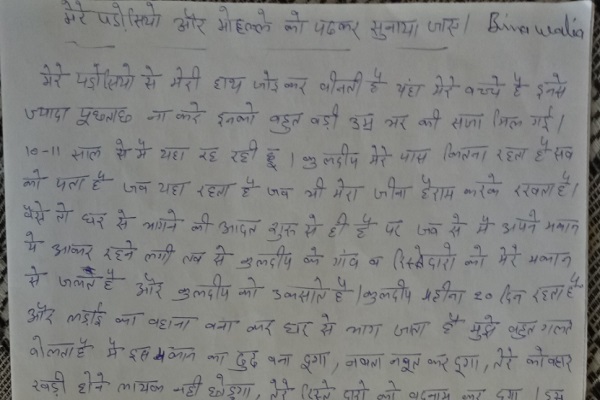 मेरे पडोसियो और मोहल्ले को पढकर सुनाया जाए। Bina walia
मेरे पडोसियो से मेरी हाथ जोड कर वीनती है यहा मेरे बच्चे है इनसे
ज्यादा पूछताछ ना करे इनको बहुत बडी उम्र भर की सजा मिल गई।
10-11 साल से मै यहा रह रही हू। कुलदीप मेरे पास कितना रहता है सब
को पता है जब यहा रहता है जब भी मेरा जीना हैराम करके रखता है।
वैसे तो घर से भागने की आदत शुरू से ही है पर जब से मै अपने मकान
मे आकर रहने लगी तब से कुलदीप के गांव व रिस्तेदारो को मेरे मकान
से जलत है और कुलदीप को उकसाते है। कुलदीप महीना 20 दिन रहता है
और लडाई का बहाना बना कर घर से भाग जाता है मुझे बहुत गलत
बोलता है मै इस मकान का दुढ बना दूगा, कर दूगा, तेरे को बहार
खडी होने लायक नही छोडूगा, तेरे रिस्ते दारो को बदनाम कर दूगा। इस